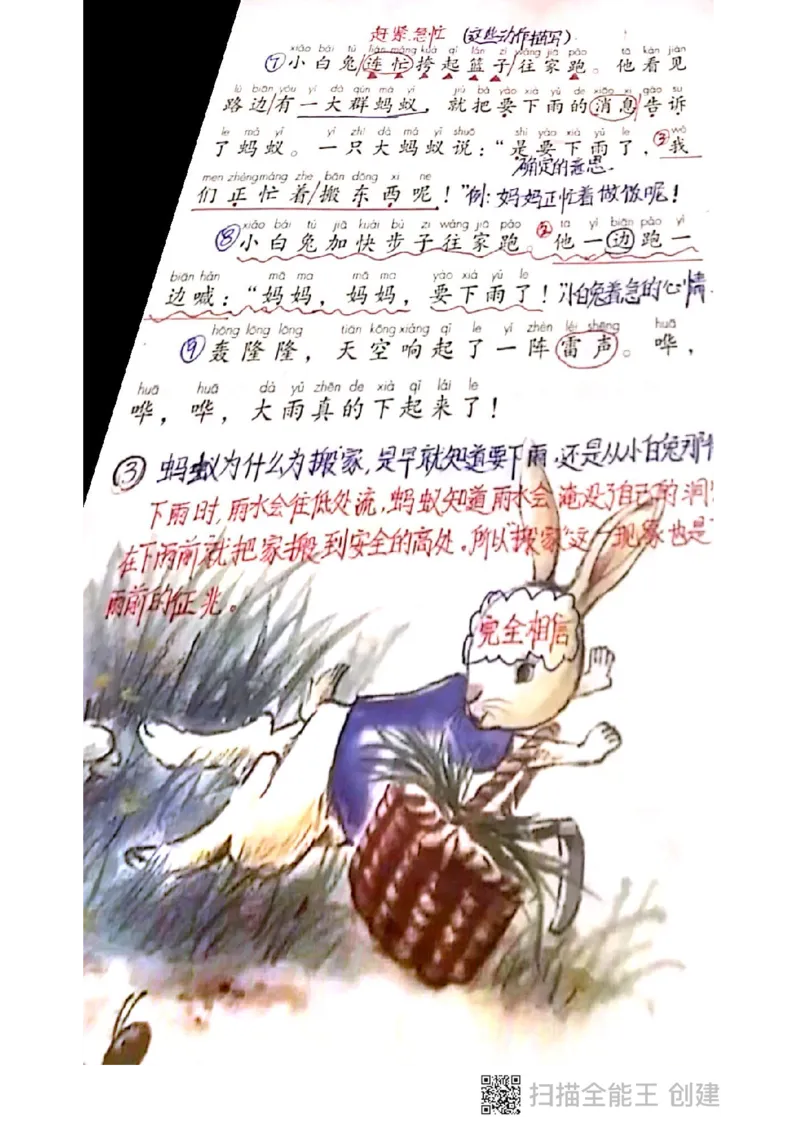 赶紧.急忙 (这些动作描写)
xiǎo bái tù lián máng kuà qǐ lán zi wǎng jiā pǎo tā kàn jiàn
⑦小白兔连忙挎起篮子/往家跑。他看见
lù biān yǒu yí dà qún mǎ yǐ jiù bǎ yào xià yǔ de xiāo xi gào su
路边/有一大群蚂蚁，就把要下雨的消息告诉
le mǎ yǐ yì zhī dà mǎ yǐ shuō shì yào xià yǔ le wǒ
了蚂蚁。一只大蚂蚁说：“是要下雨了，③我
确定的意思.
men zhèng máng zhe bān dōng xi ne
们正忙着/搬东西呢！”例:妈妈正忙着做饭呢!
xiǎo bái tù jiā kuài bù zi wǎng jiā pǎo tā yì biān pǎo yì
⑧小白兔加快步子往家跑。②他一边跑一
biān hǎn mā ma mā ma yào xià yǔ le
边喊：“妈妈，妈妈，要下雨了！”小白兔着急的心情
hōng lōng lōng tiān kōng xiǎng qǐ le yí zhèn léi shēng huā
⑨轰隆隆，天空响起了一阵雷声。哗，
huā huā dà yǔ zhēn de xià qǐ lái le
哗，哗，大雨真的下起来了！
③ 蚂蚁为什么为搬家,是早就知道要下雨,还是从小白兔那
下雨时,雨水会往低处流,蚂蚁知道雨水会淹没了自己的洞!
在下雨前就把家搬到安全的高处.所以“搬家”这一现象也是
雨前的征兆。
完全相信
扫描全能王 创建